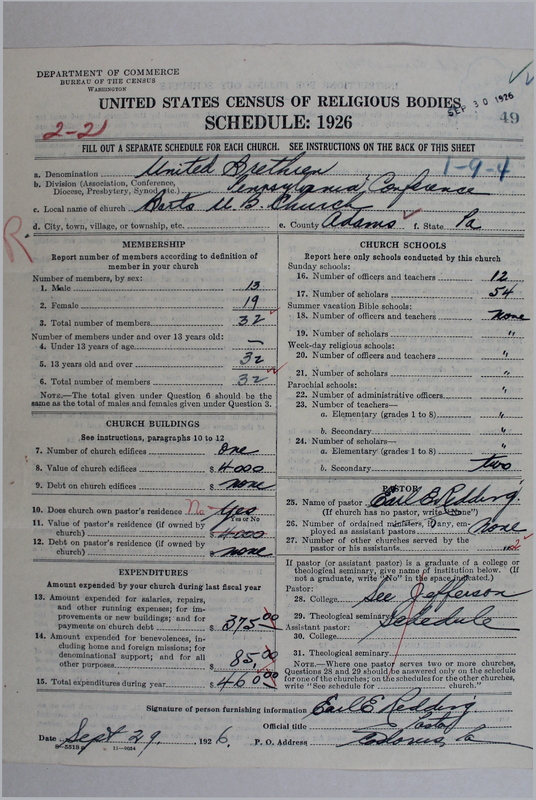 DEPARTMENT OF COMMERCE
BUREAU OF THE CENSUS
WASHINGTON
UNITED STATES CENSUS OF RELIGIOUS BODIES
SEP 30 1926
49
2-21
SCHEDULE: 1926
FILL OUT A SEPARATE SCHEDULE FOR EACH CHURCH. SEE INSTRUCTIONS ON THE BACK OF THIS SHEET
a. Denomination United Brethren 1-9-4
b. Division (Association, Conference, Diocese, Presbytery, Synod, etc.) Pennsylvania Conference
c. Local name of church Barts U. B. Church
d. City, town, village, or township, etc. e. County Adams f. State Pa
R.
MEMBERSHIP
Report number of members according to definition of member in your church
Number of members, by sex:
1. Male 13
2. Female 19
3. Total number of members 32
Number of members under and over 13 years old:
4. Under 13 years of age —
5. 13 years old and over 32
6. Total number of members 32
NOTE.—The total given under Question 6 should be the same as the total of males and females given under Question 3.
CHURCH BUILDINGS
See instructions, paragraphs 10 to 12
7. Number of church edifices One
8. Value of church edifices $ 4000
9. Debt on church edifices $ none
10. Does church own pastor's residence? no Yes
Yes or No
11. Value of pastor's residence (if owned by church) $ 4000
12. Debt on pastor's residence (if owned by church) $ none
EXPENDITURES
Amount expended by your church during last fiscal year
13. Amount expended for salaries, repairs, and other running expenses; for improvements or new buildings; and for payments on church debt $ 375.00
14. Amount expended for benevolences, including home and foreign missions; for denominational support; and for all other purposes $ 85.00
15. Total expenditures during year $ 460.00
CHURCH SCHOOLS
Report here only schools conducted by this church
Sunday schools:
16. Number of officers and teachers 12
17. Number of scholars 54
Summer vacation Bible schools:
18. Number of officers and teachers none
19. Number of scholars "
Week-day religious schools:
20. Number of officers and teachers "
21. Number of scholars "
Parochial schools:
22. Number of administrative officers "
23. Number of teachers—
a. Elementary (grades 1 to 8) "
b. Secondary "
24. Number of scholars—
a. Elementary (grades 1 to 8) "
b. Secondary two
PASTOR
25. Name of pastor Earl E. Redding.
(If church has no pastor, write "None")
26. Number of ordained ministers, if any, employed as assistant pastors none
27. Number of other churches served by the pastor or his assistants 2
If pastor (or assistant pastor) is a graduate of a college or theological seminary, give name of institution below. (If not a graduate, write "No" in the space indicated.)
Pastor:
28. College See Jefferson
29. Theological seminary Schedule
Assistant pastor:
30. College
31. Theological seminary
NOTE.—Where one pastor serves two or more churches, Questions 28 and 29 should be answered only on the schedule for one of the churches; on the schedules for the other churches, write "See schedule for church."
Signature of person furnishing information Earl E. Redding
Official title Pastor
Date Sept 29, 1926. P. O. Address Codorus, Pa
8-5518 11-9054